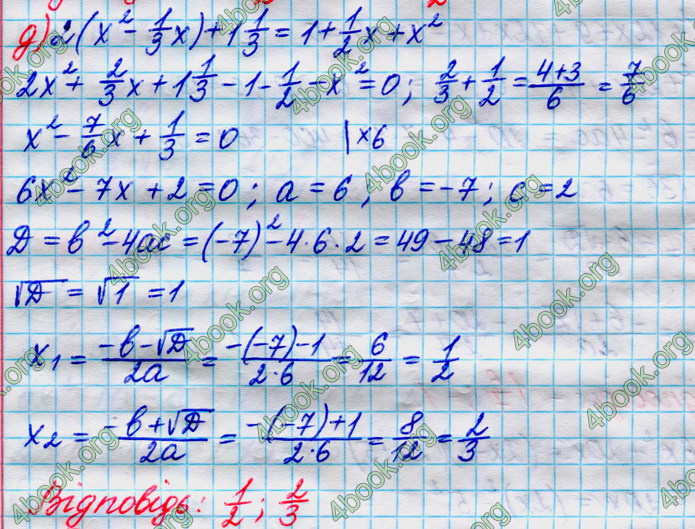 д) 2(x² - 1/3x) + 1 1/3 = 1 + 1/2x + x²
2x² + 2/3x + 1 1/3 - 1 - 1/2 - x² = 0; 2/3 + 1/2 = (4+3)/6 = 7/6
x² - 7/6x + 1/3 = 0 | ×6
6x² - 7x + 2 = 0; a = 6; b = -7; c = 2
D = b² - 4ac = (-7)² - 4·6·2 = 49 - 48 = 1
√D = √1 = 1
x₁ = (-b - √D)/2a = (-(-7) - 1)/(2·6) = 6/12 = 1/2
x₂ = (-b + √D)/2a = (-(-7) + 1)/(2·6) = 8/12 = 2/3
Відповідь: 1/2; 2/3
4book.org